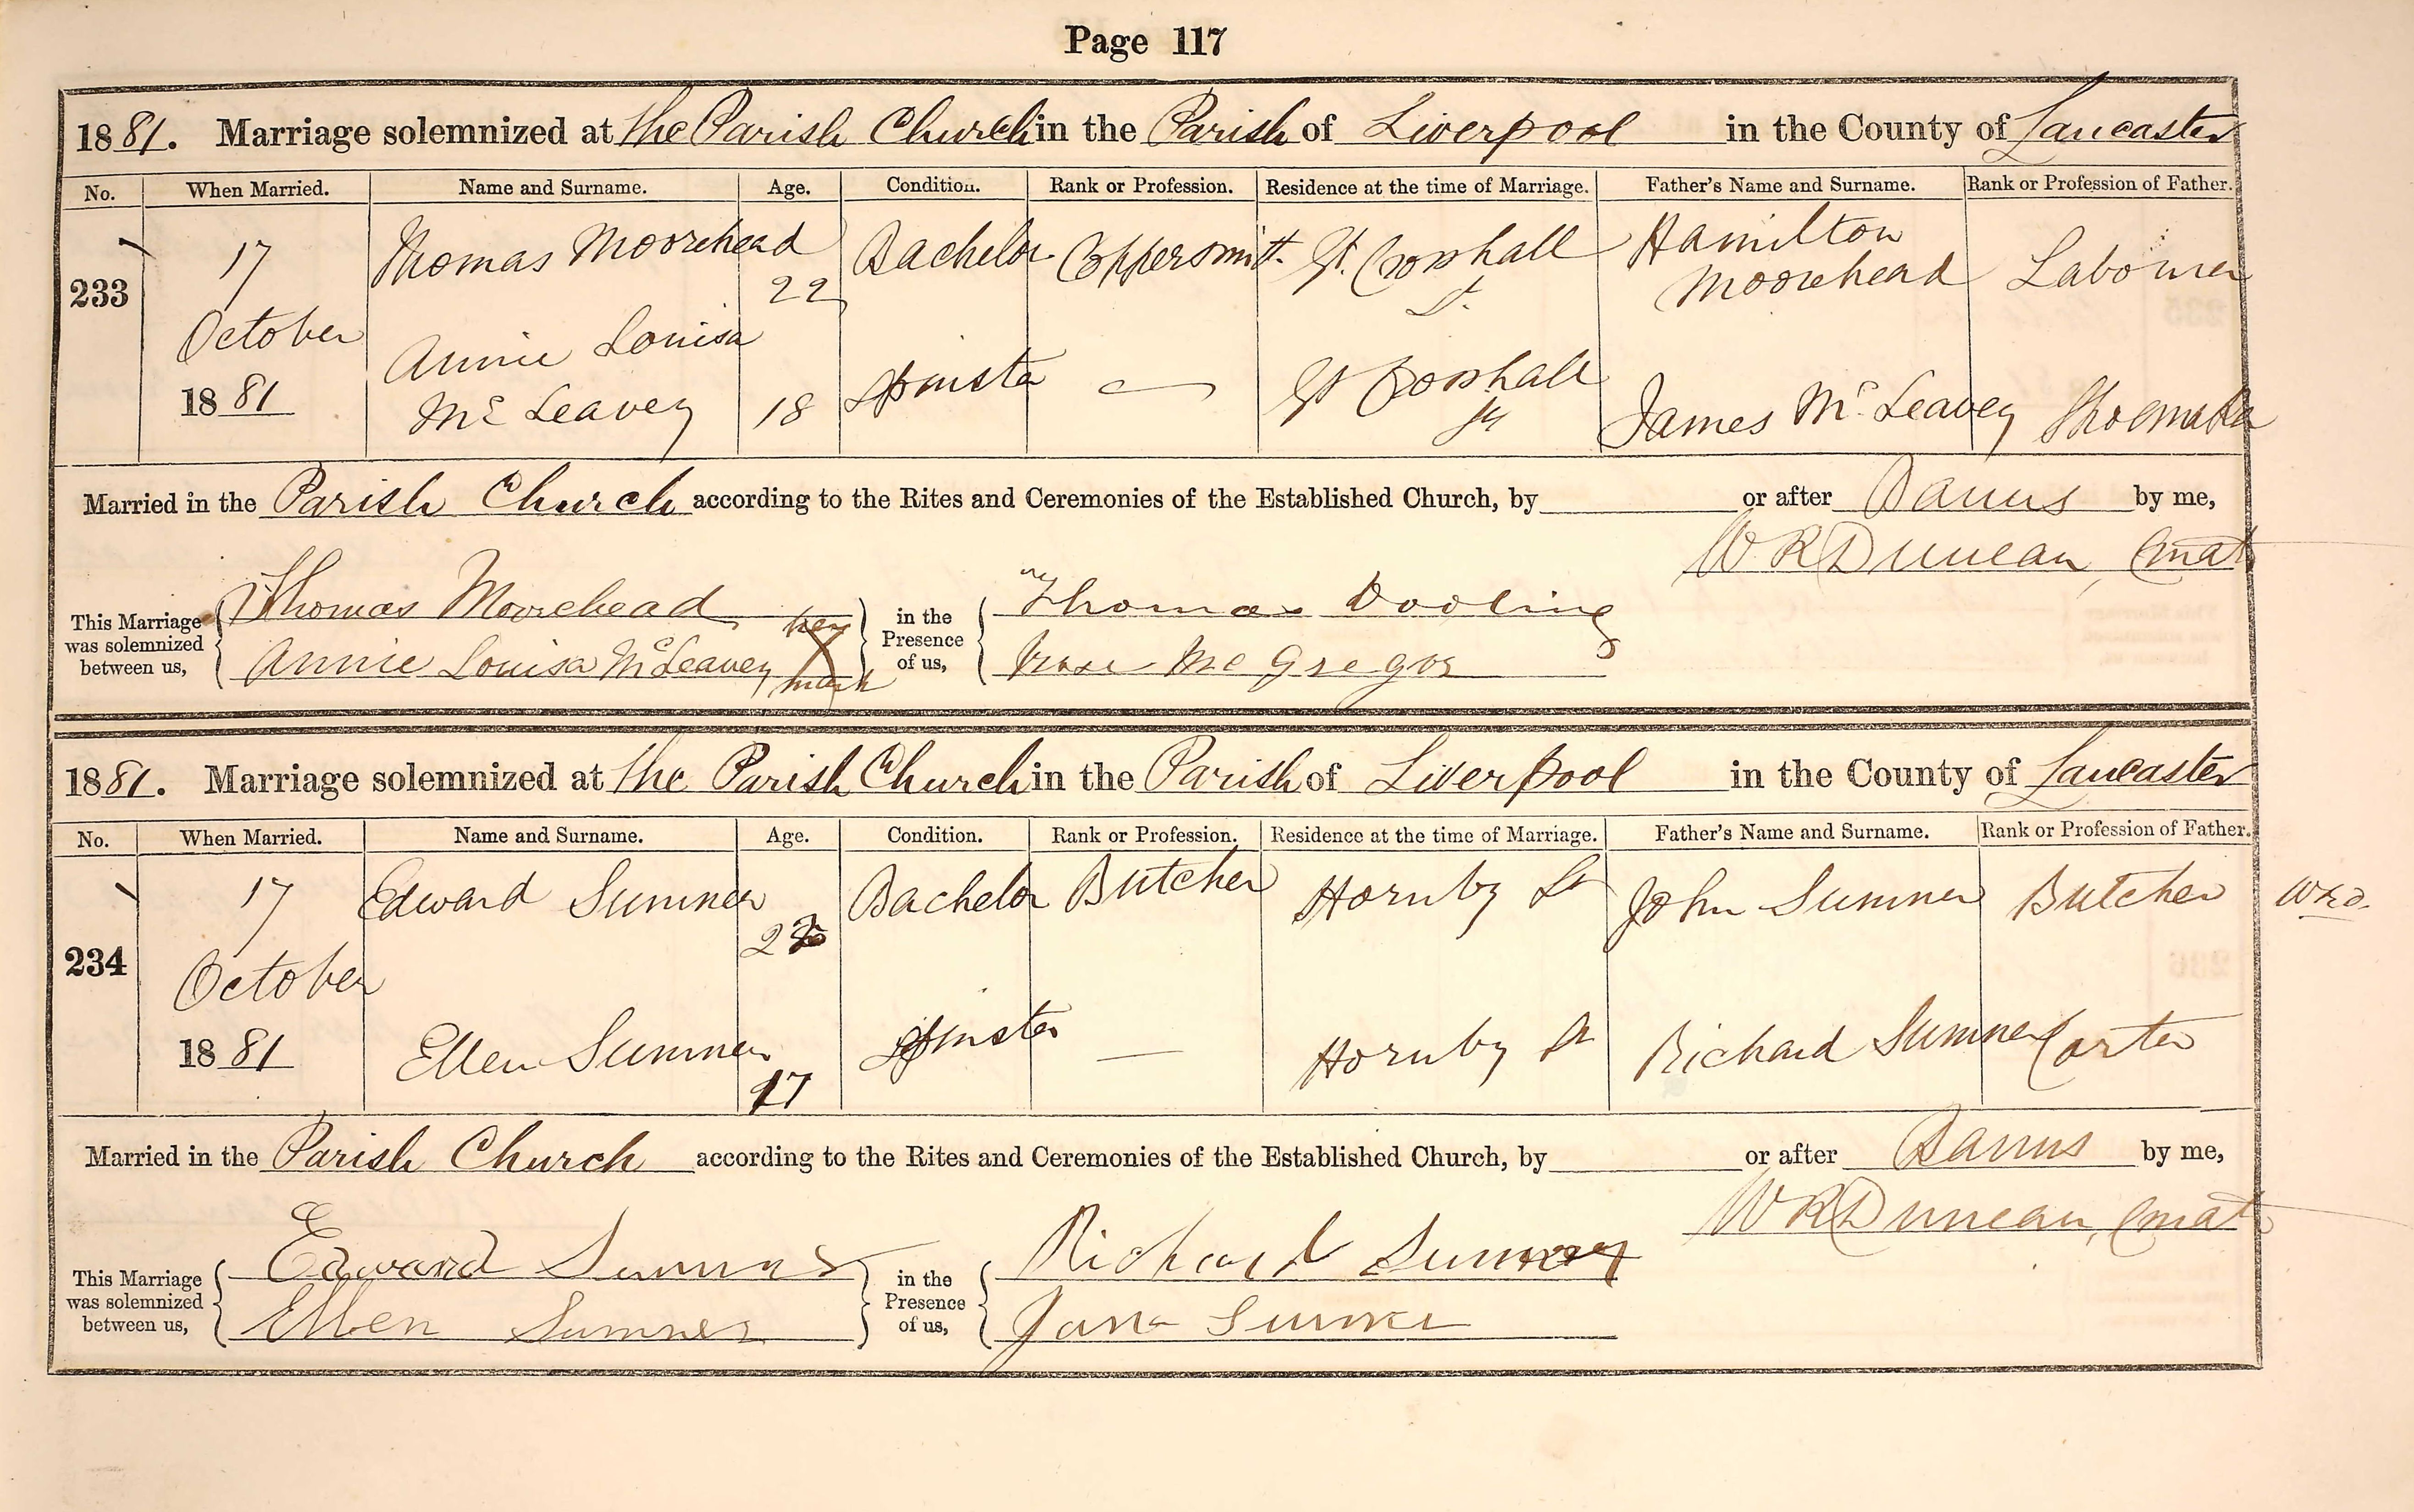 Page 117
1881. Marriage solemnized at the Parish Church in the Parish of Liverpool in the County of Lancaster
No. When Married. Name and Surname. Age. Condition. Rank or Profession. Residence at the time of Marriage. Father's Name and Surname. Rank or Profession of Father.
233 17 October 1881 Thomas Moorehead 22 Bachelor Coppersmith Gt. Crosshall St. Hamilton Moorehead Labourer
Annie Louisa McLeavey 18 Spinster — Gt Crosshall St James McLeavey Shoemaker
Married in the Parish Church according to the Rites and Ceremonies of the Established Church, by or after Banns by me,
W R Duncan, Curate
This Marriage was solemnized between us, Thomas Moorehead in the Presence of us, Thomas Dooling
Annie Louisa McLeavey her X mark Rose McGregor
1881. Marriage solemnized at the Parish Church in the Parish of Liverpool in the County of Lancaster
No. When Married. Name and Surname. Age. Condition. Rank or Profession. Residence at the time of Marriage. Father's Name and Surname. Rank or Profession of Father.
234 17 October 1881 Edward Sumner Bachelor Butcher Hornby St John Sumner Butcher WRD.
Ellen Sumner 17 Spinster — Hornby St Richard Sumner Carter
Married in the Parish Church according to the Rites and Ceremonies of the Established Church, by or after Banns by me,
W R Duncan, Curate
This Marriage was solemnized between us, Edward Sumner in the Presence of us, Richard Sumner
Ellen Sumner Jane Sumner